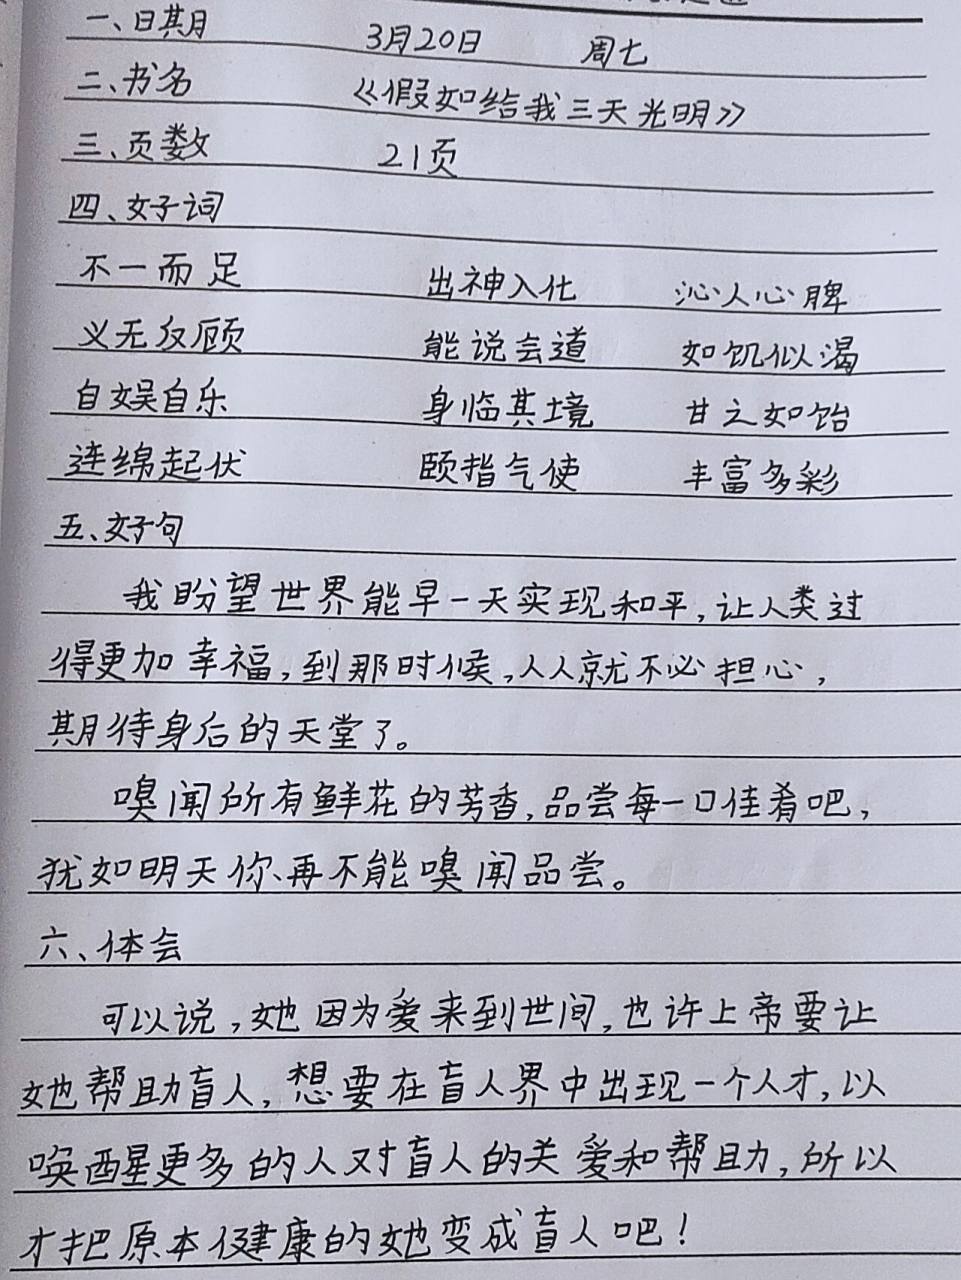 一、日期 3月20日 周七
二、书名 《假如给我三天光明》
三、页数 21页
四、好词
不一而足 出神入化 沁人心脾
义无反顾 能说会道 如饥似渴
自娱自乐 身临其境 甘之如饴
连绵起伏 颐指气使 丰富多彩
五、好句
我盼望世界能早一天实现和平,让人类过
得更加幸福,到那时候,人人就不必担心,
期待身后的天堂了。
嗅闻所有鲜花的芳香,品尝每一口佳肴吧,
犹如明天你再不能嗅闻品尝。
六、体会
可以说,她因为爱来到世间,也许上帝要让
她帮助盲人,想要在盲人界中出现一个人才,以
唤醒更多的人对盲人的关爱和帮助,所以
才把原本健康的她变成盲人吧!